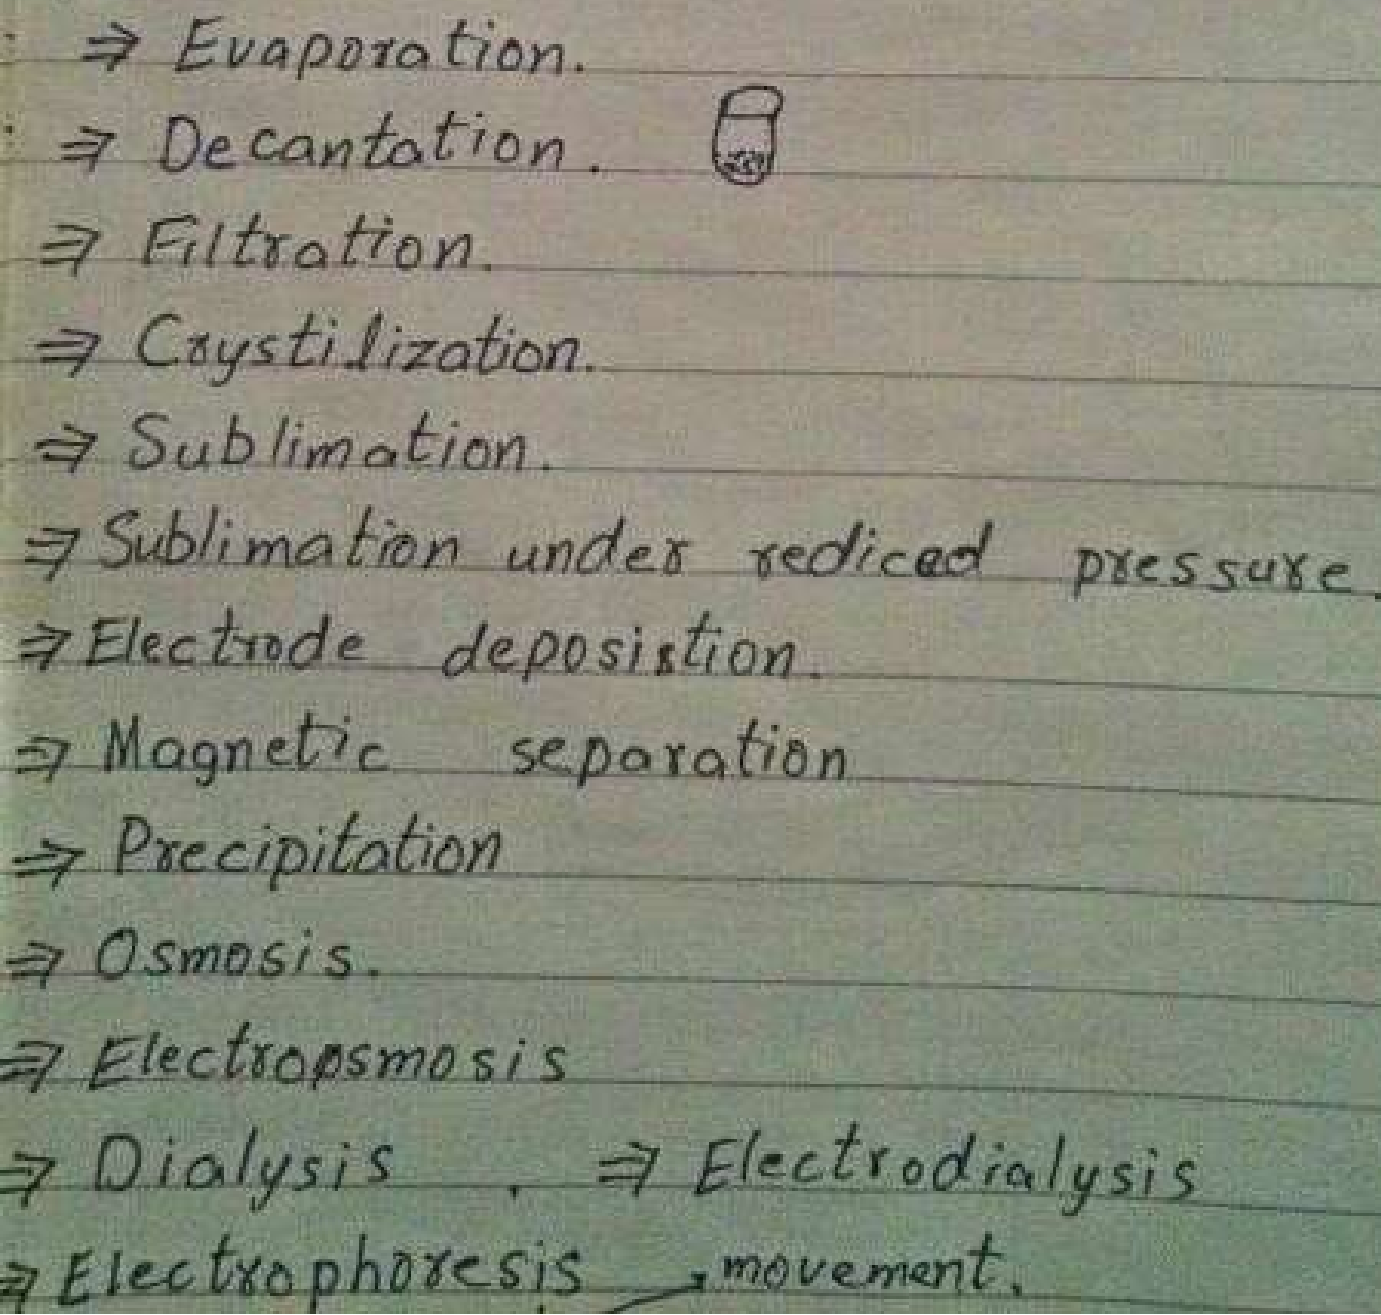 ⇒ Evaporation.
⇒ Decantation.
⇒ Filtration.
⇒ Crystilization.
⇒ Sublimation.
⇒ Sublimation under rediced pressure.
⇒ Electrode deposistion.
⇒ Magnetic separation
⇒ Precipitation
⇒ Osmosis.
⇒ Electroosmosis
⇒ Dialysis . ⇒ Electrodialysis
⇒ Electrophoresis → movement.